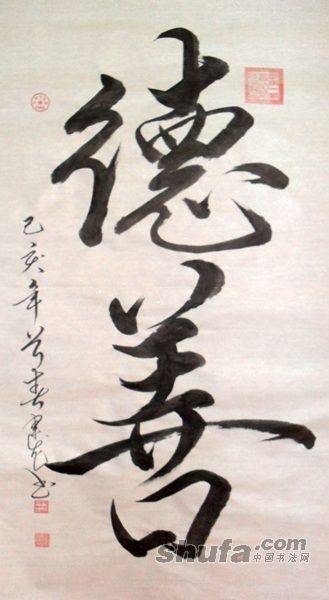 德善
己亥年首春
shufa.com
中国书法网